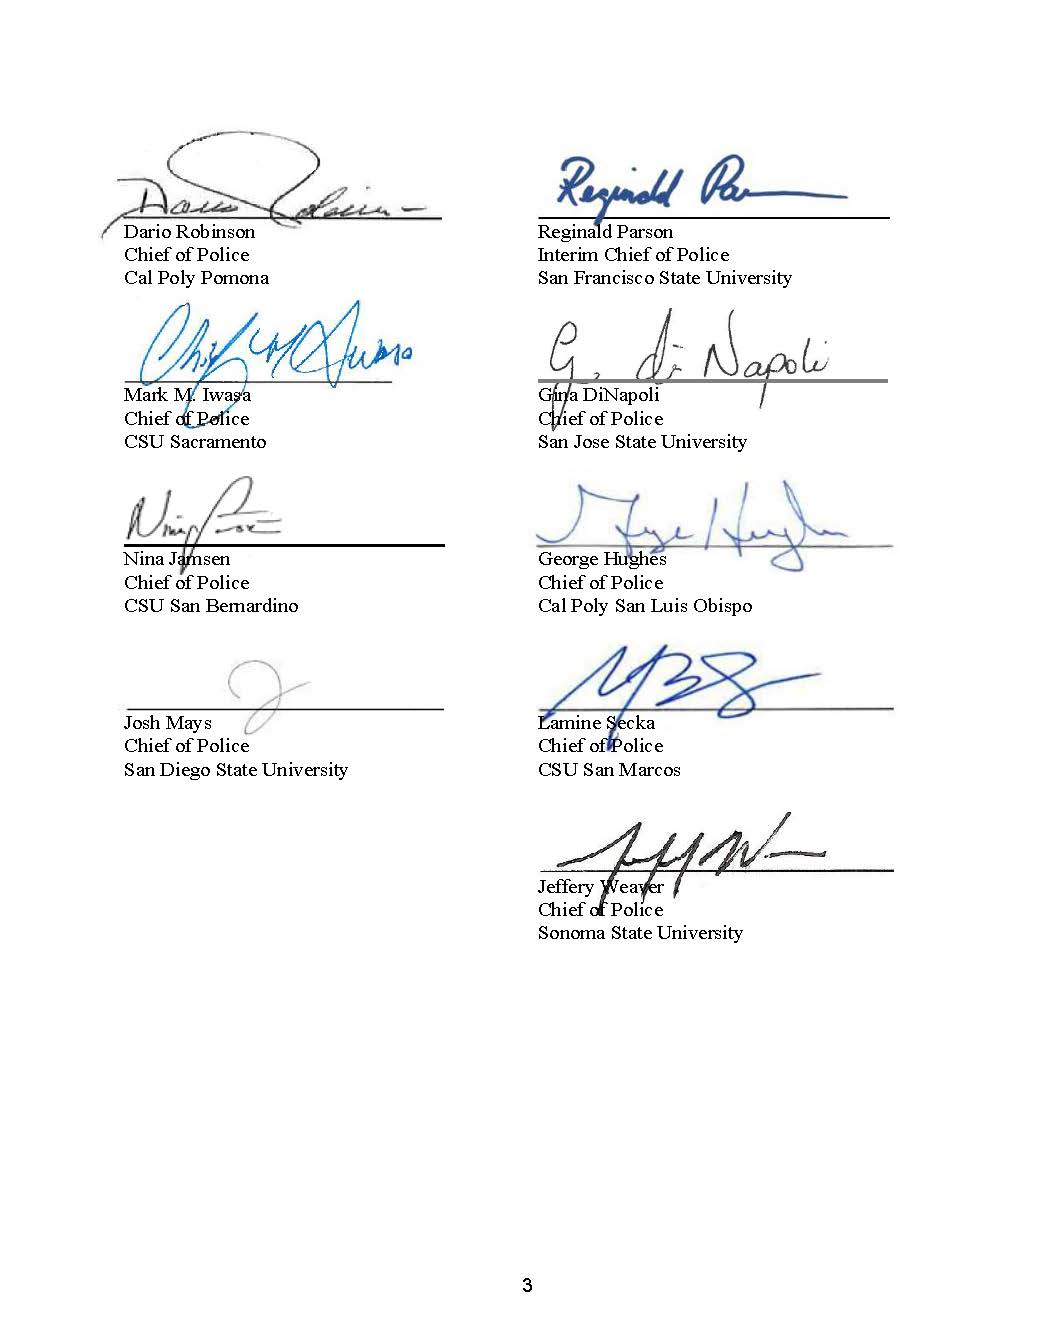 Dario Robinson
Chief of Police
Cal Poly Pomona
Reginald Par
Reginald Parson
Interim Chief of Police
San Francisco State University
Chief M Iwasa
Mark M. Iwasa
Chief of Police
CSU Sacramento
G. di Napoli
Gina DiNapoli
Chief of Police
San Jose State University
Nina Jamsen
Chief of Police
CSU San Bernardino
George Hughes
George Hughes
Chief of Police
Cal Poly San Luis Obispo
Josh Mays
Chief of Police
San Diego State University
Lamine Secka
Chief of Police
CSU San Marcos
Jeffery Weaver
Chief of Police
Sonoma State University
3